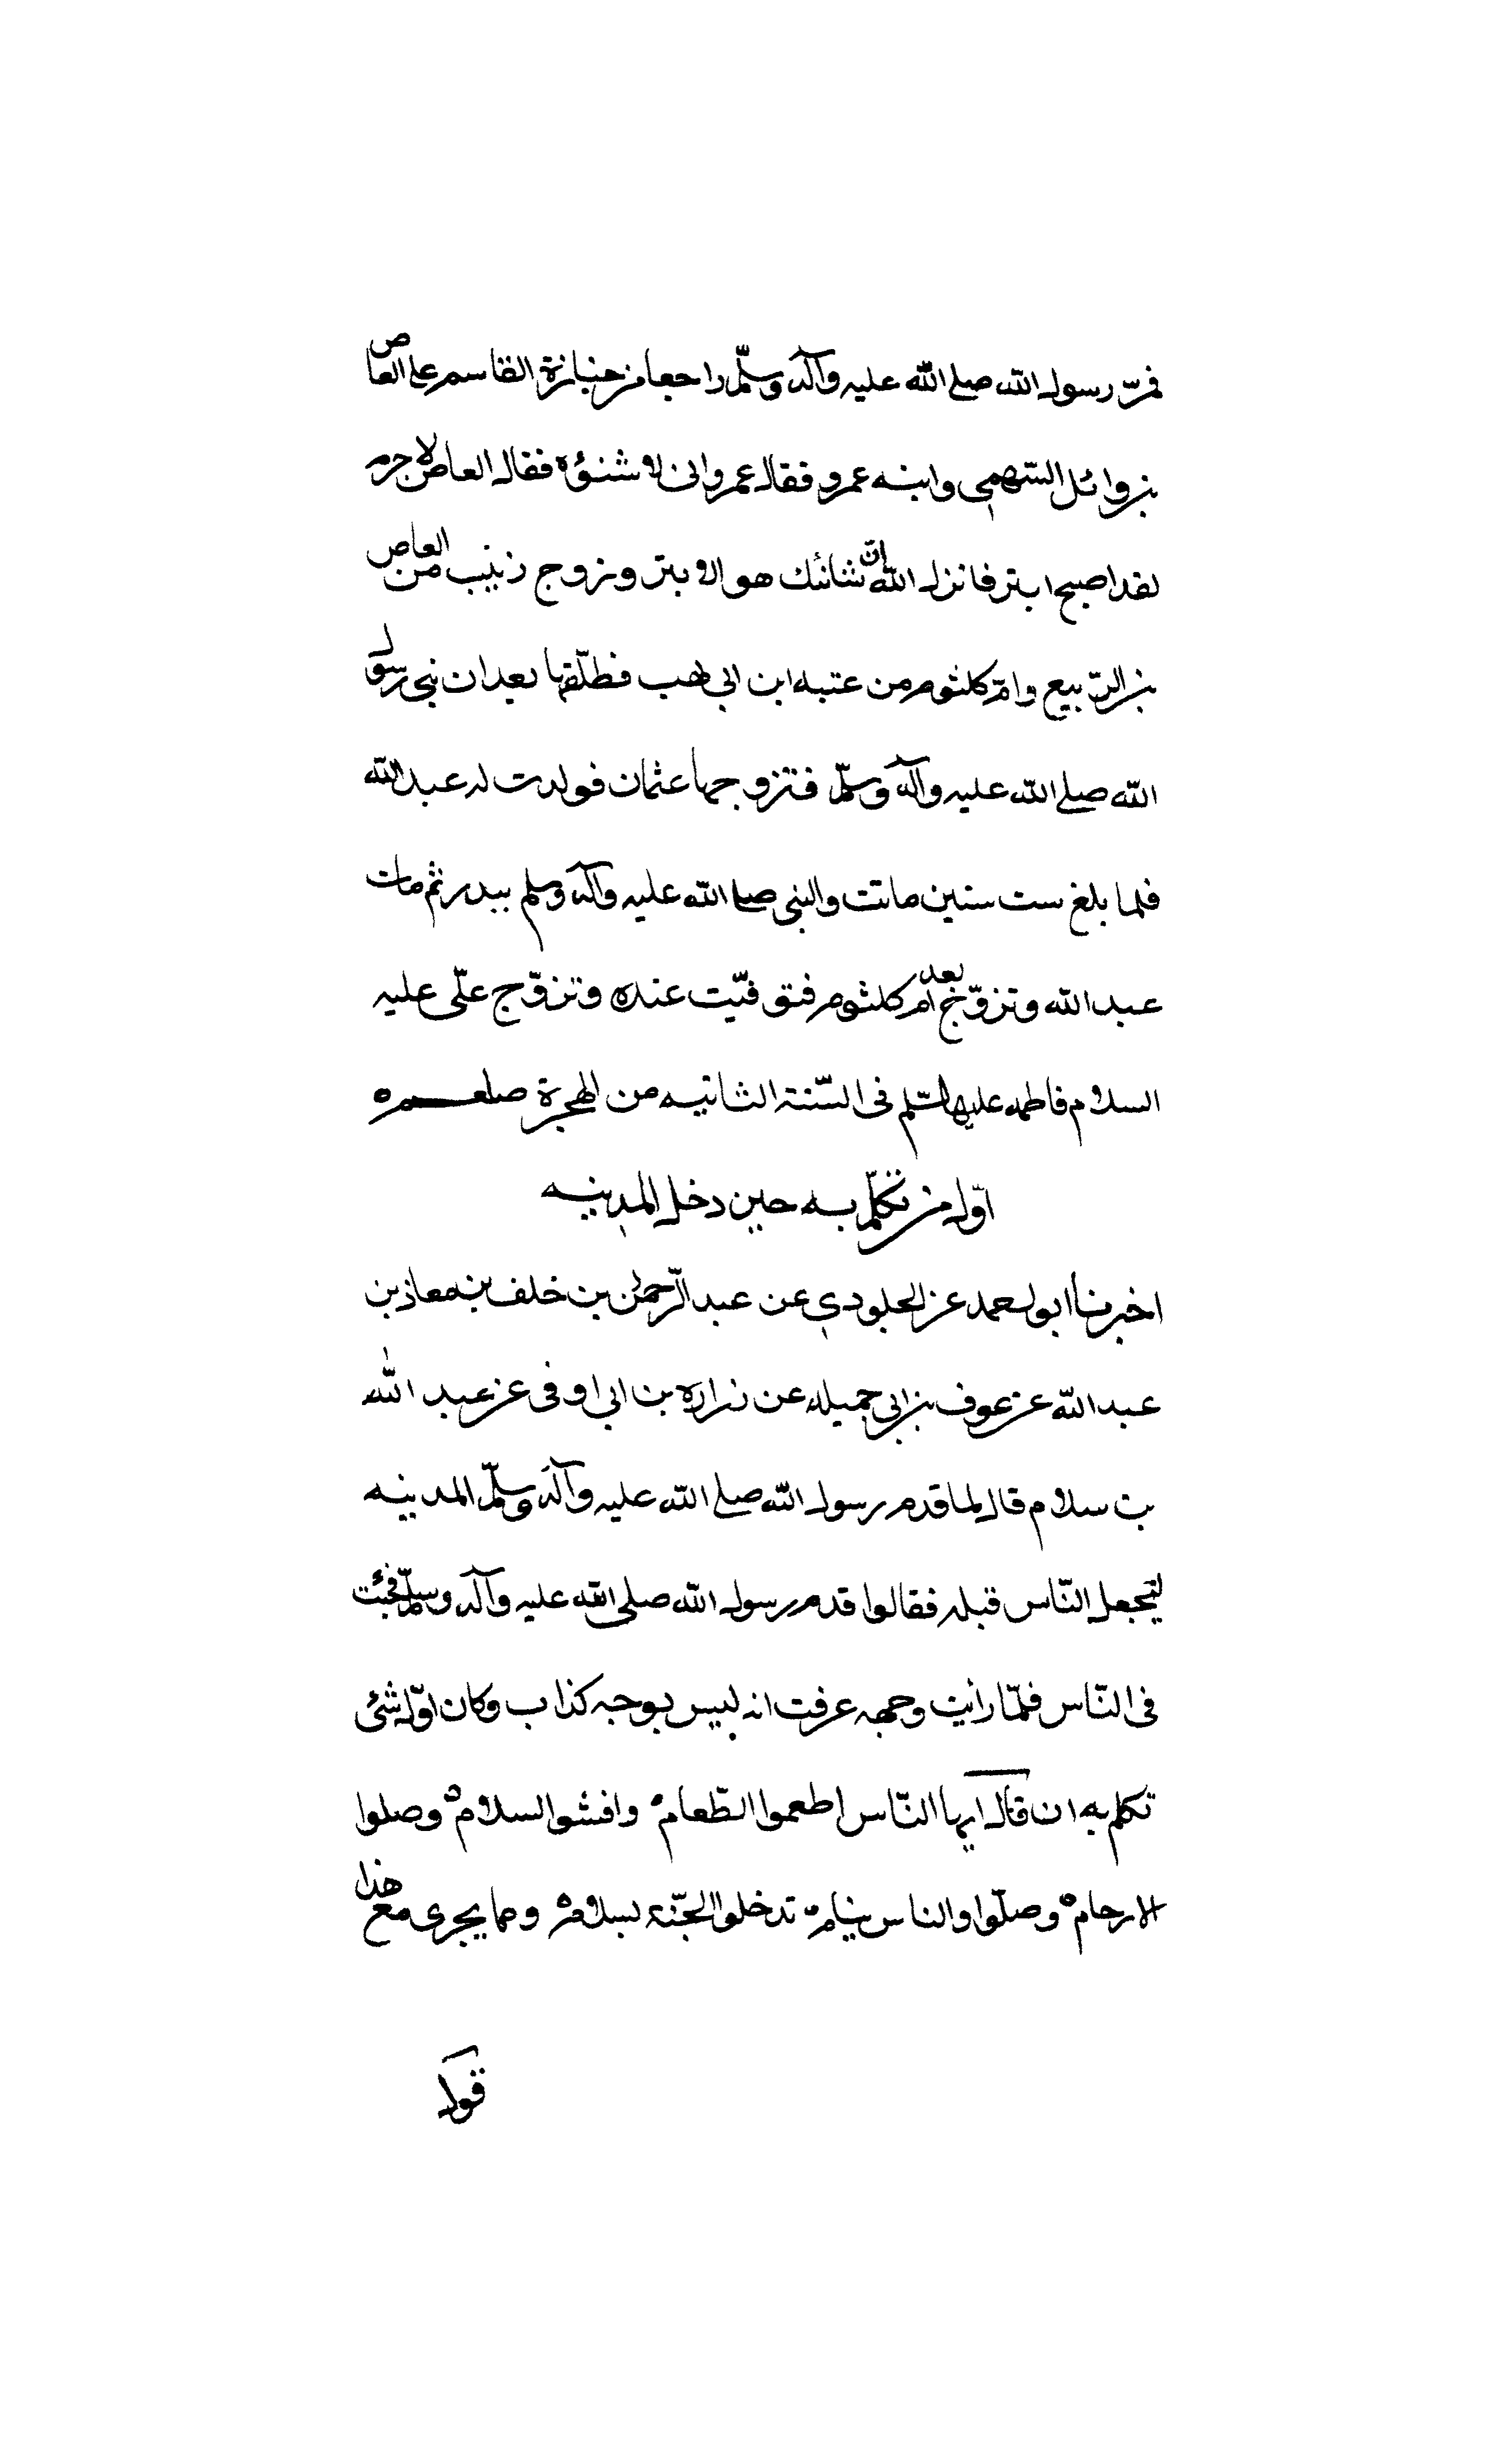 فمرّ رسول الله صلى الله عليه وآله وسلّم راجعا من جنازة القاسم على العاص
بن وائل السّهمي وابنه عمرو فقال عمرو انى لاشنؤه فقال العاص لاجرم
لقد اصبح ابتر فانزل الله انّ شانئك هو الابتر وزوج زينب من العاص
بن الربيع وامّ كلثوم من عتبه ابن ابى لهب فطلّقها بعد ان نبى رسول
الله صلى الله عليه وآله وسلّم فتزوجها عثمان فولدت له عبد الله
فلما بلغ ست سنين ماتت والنبى صلى الله عليه وآله وسلم ببدر ثم مات
عبد الله وتزوّج بعد امّ كلثوم فتوفّيت عنده وتزوّج علّى عليه
السلام فاطمه عليها السّلم فى السّنة الثانيه من الهجرة
اوّل من تكلّم به حين دخل المدينه
اخبرنا ابو احمد عن الجلودي عن عبد الرّحمن بن خلف بن معاذ بن
عبد الله عن عوف بن ابى جميله عن زراره بن ابى اوفى عن عبد الله
بن سلام قال لما قدم رسول الله صلى الله عليه وآله وسلّم المدينه
النّاس قبله فقالوا قدم رسول الله صلى الله عليه وآله وسلّم فجئت
فى النّاس فلمّا رأيت وجهه عرفت انه ليس بوجه كذاب وكان اوّل شئى
تكلم به ان قال ايها النّاس اطعموا الطّعام وافشوا السلام وصلوا
الارحام وصلّوا والناس نيام تدخلوا الجّنة بسلام ومما يجرى مع هذا
قول